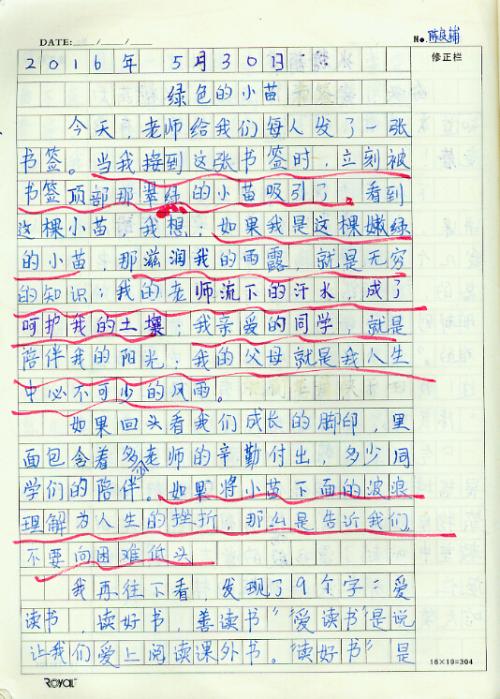 DATE: / /
No. 陈良辅
修正栏
2016年 5月30日
绿色的小苗
今天,老师给我们每人发了一张
书签。当我接到这张书签时,立刻被
书签顶部那翠绿的小苗吸引了。看到
这棵小苗,我想:如果我是这棵嫩绿
的小苗,那滋润我的雨露,就是无穷
的知识;我的老师流下的汗水,成了
呵护我的土壤;我亲爱的同学,就是
陪伴我的阳光,我的父母就是我人生
中必不可少的风雨。
如果回头看我们成长的脚印,里
面包含着多老师的辛勤付出,多少同
学们的陪伴。如果将小苗下面的波浪
理解为人生的挫折,那么是告近我们,
不要向困难低头
我再往下看,发现了9个字:爱
读书,读好书,善读书”“爱读书”是说
让我们爱上阅读课外书。“读好书”是
ROYAL
16×19=304